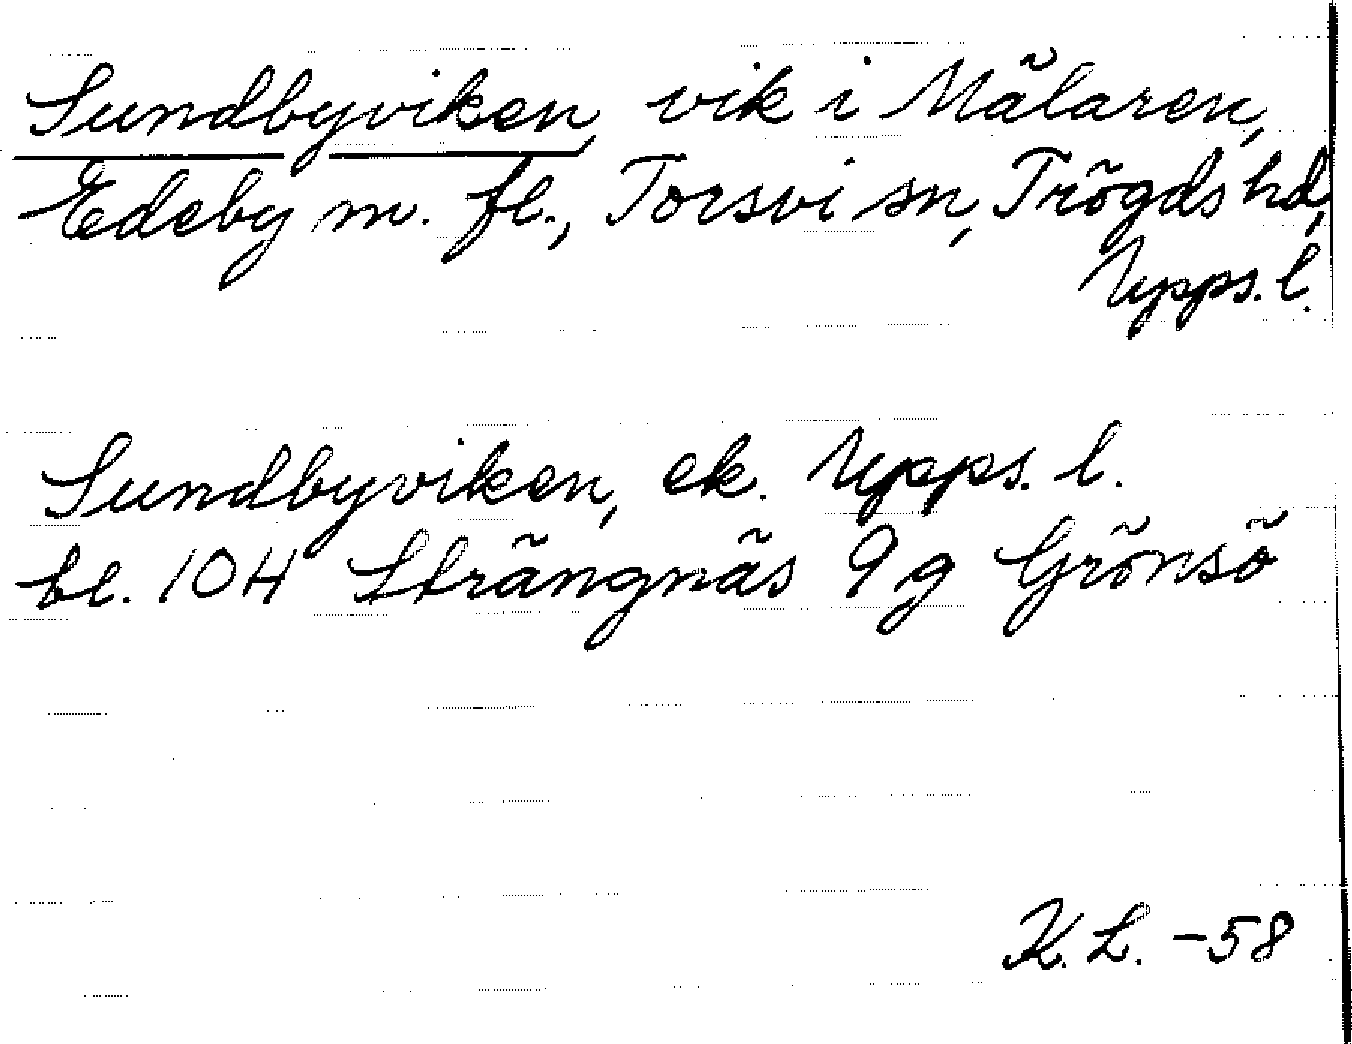 Sundbyviken, vik i Mälaren,
Edeby m. fl., Torsvi sn, Trögds hd,
Upps. l.
Sundbyviken, ek. Upps. l.
bl. 10H Strängnäs 9g Grönsö
K. L. -58